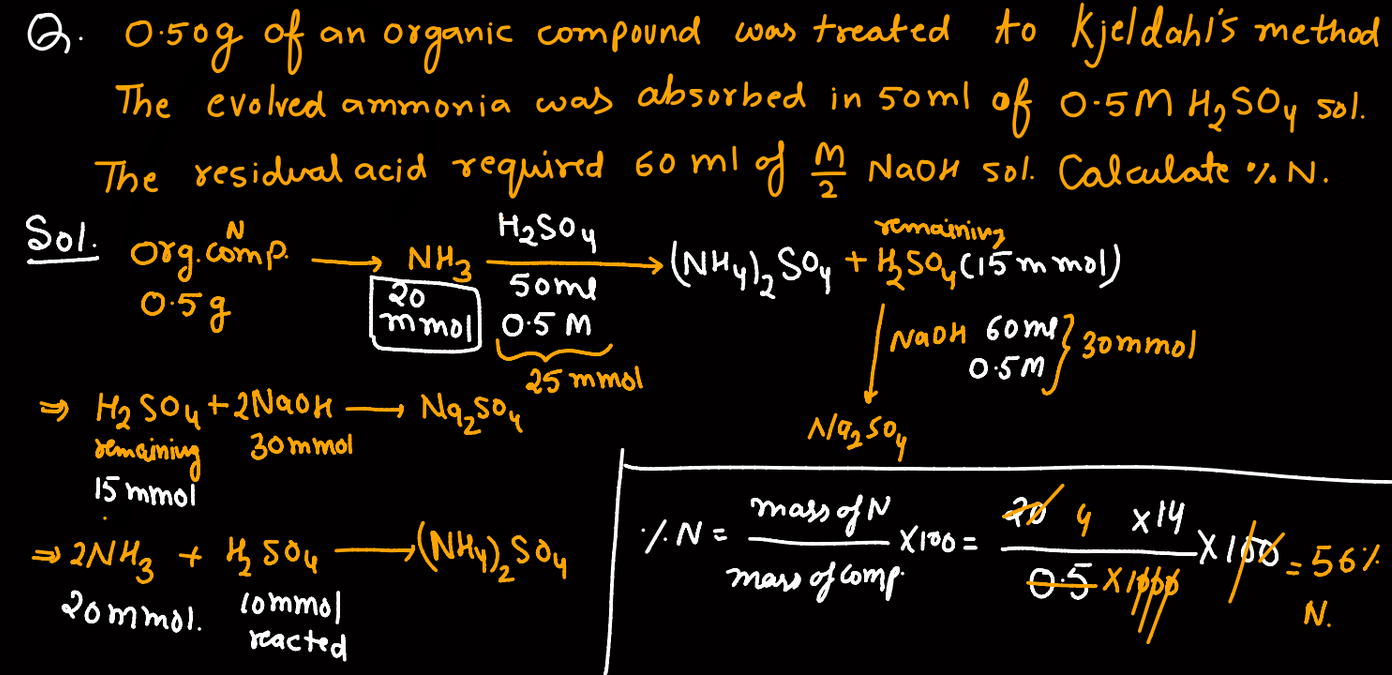 Q. 0.50g of an organic compound was treated to Kjeldahl's method
The evolved ammonia was absorbed in 50ml of 0.5M H₂SO₄ sol.
The residual acid required 60 ml of M/2 NaOH sol. Calculate %N.
Sol. Org. comp. N ⟶ NH₃ H₂SO₄ ⟶ (NH₄)₂SO₄ + remaining H₂SO₄ (15 mmol)
0.5g 20 mmol 50ml 0.5 M
25 mmol
NaOH 60ml 0.5M } 30mmol
Na₂SO₄
⇒ H₂SO₄ + 2NaOH ⟶ Na₂SO₄
remaining 30mmol
15 mmol
⇒ 2NH₃ + H₂SO₄ ⟶ (NH₄)₂SO₄
20mmol. 10mmol
reacted
%N = mass of N / mass of comp. X100 = 20 4 x14 / 0.5 X1000 X100 = 56%
N.